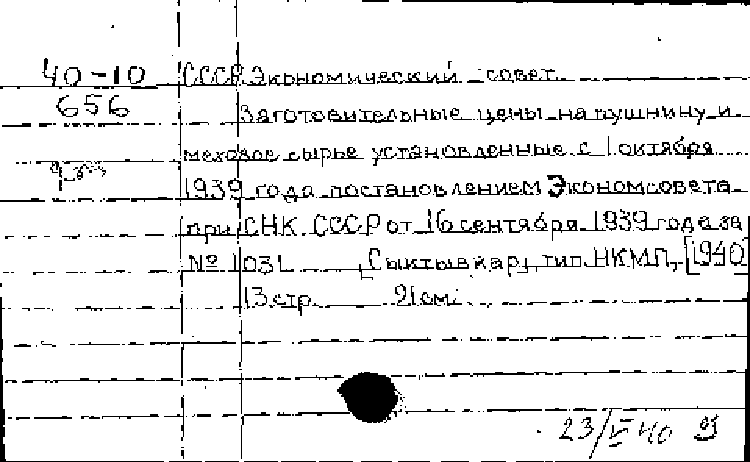 40-10 СССР. Экономический совет.
656 Заготовительные цены на пушнину и
меховое сырье установленные с 1 октября
1939 года постановлением Экономсовета
при СНК СССР от 16 сентября 1939 года за
№ 1031. Сыктывкар, тип. НКМП, [1940]
13 стр. 21 см.
23/V 40